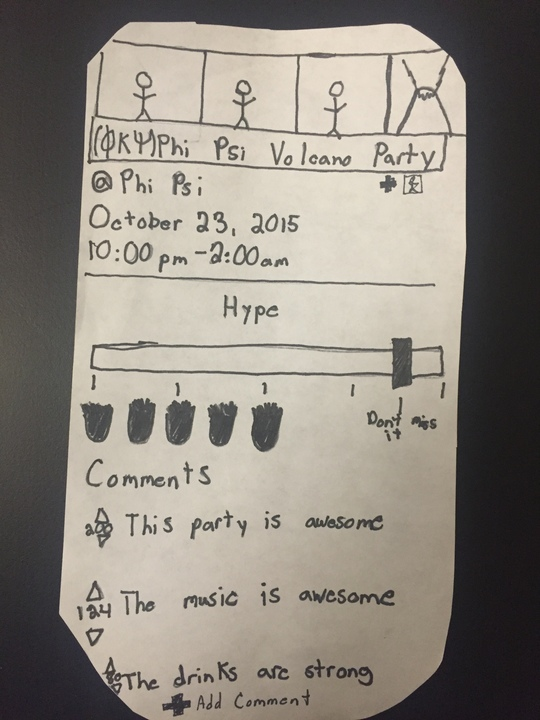 (ΦΚΨ)Phi Psi Volcano Party
@ Phi Psi
October 23, 2015
10:00 pm - 2:00 am
Hype
Don't miss it
Comments
200 This party is awesome
124 The music is awesome
The drinks are strong
Add Comment